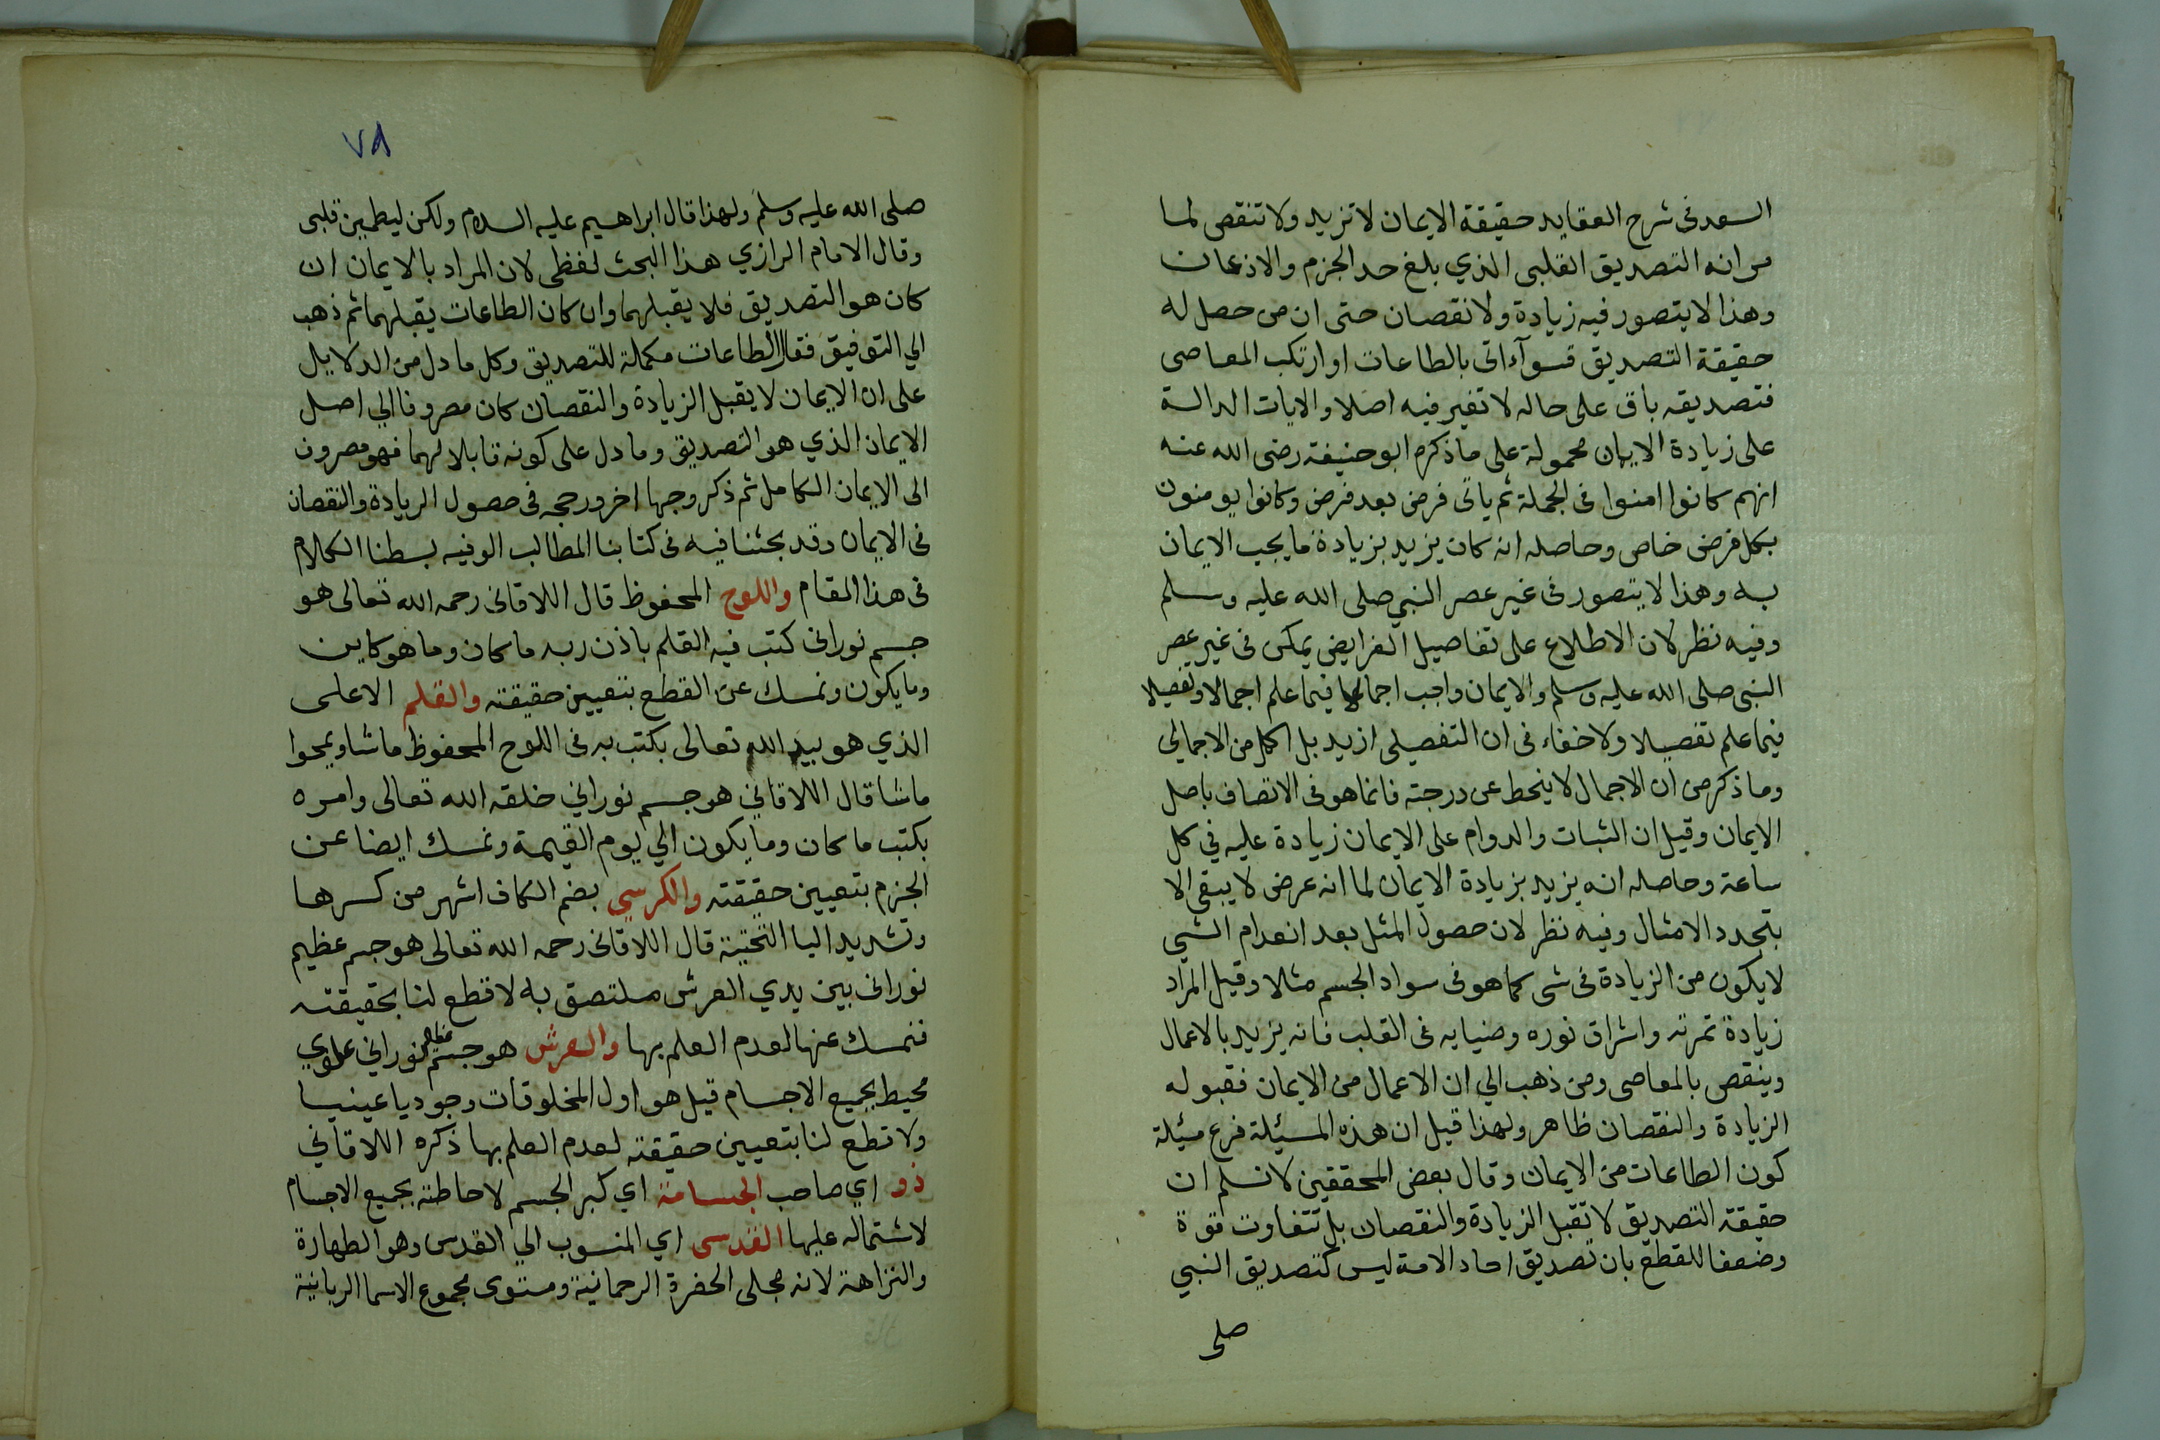 السعد فى شرح العقايد حقيقة الايمان لا تزيد ولا تنقص لما
مر انه التصديق القلبى الذي بلغ حد الجزم والاذعان
وهذا لا يتصور فيه زيادة ولا نقصان حتى ان من حصل له
حقيقة التصديق فسوآء اتى بالطاعات او ارتكب المعاصى
فتصديقه باق على حاله لا تغير فيه اصلا والايات الدالة
على زيادة الايمان محمولة على ما ذكره ابو حنيفة رضى الله عنه
انهم كانوا امنوا فى الجملة ثم ياتى فرض بعد فرض وكانوا يومنون
بكل فرض خاص وحاصله انه كان يزيد بزيادة ما يجب الايمان
به وهذا لا يتصور فى غير عصر النبي صلى الله عليه وسلم
وفيه نظر لان الاطلاع على تفاصيل الفرايض يمكن فى غير عصر
النبى صلى الله عليه وسلم والايمان واجب اجمالا فيما علم اجمالا وتفصيلا
فيما علم تفصيلا ولا خفاء فى ان التفصيلى ازيد بل اكمل من الاجمالي
وما ذكر من ان الاجمال لا ينحط عن درجته فانما هو فى الاتصاف باصل
الايمان وقيل ان الثبات والدوام على الايمان زيادة عليه في كل
ساعة وحاصله انه يزيد بزيادة الايمان لما انه عرض لا يبقى الا
بتجدد الامثال وفيه نظر لان حصول المثل بعد انعدام الشي
لا يكون من الزيادة فى شى كما هو فى سواد الجسم مثلا وقيل المراد
زيادة ثمرته واشراق نوره وضيايه فى القلب فانه يزيد بالاعمال
وينقص بالمعاصى ومن ذهب الي ان الاعمال من الايمان فقبوله
الزيادة والنقصان ظاهر ولهذا قيل ان هذه المسئلة فرع مسئلة
كون الطاعات من الايمان وقال بعض المحققين لا نسلم ان
حقيقة التصديق لا تقبل الزيادة والنقصان بل تتفاوت قوة
وضعفا للقطع بان تصديق احاد الامة ليس كتصديق النبي
صلى
٧٨
صلى الله عليه وسلم ولهذا قال ابراهيم عليه السلام ولكن ليطمين قلبى
وقال الامام الرازي هذا البحث لفظى لان المراد بالايمان ان
كان هو التصديق فلا يقبلهما وان كان الطاعات يقبلهما ثم ذهب
الي التوفيق فقال الطاعات مكملة للتصديق وكل ما دل من الدلايل
على ان الايمان لا يقبل الزيادة والنقصان كان مصروفا الي اصل
الايمان الذي هو التصديق وما دل على كونه قابلا لهما فهو مصروف
الى الايمان الكامل ثم ذكر وجها اخر ورجحه فى حصول الزيادة والنقصان
فى الايمان وقد بحثنا فيه فى كتابنا المطالب الوفيه بسطنا الكلام
فى هذا المقام واللوح المحفوظ قال اللاقانى رحمه الله تعالى هو
جسم نورانى كتب فيه القلم باذن ربه ما كان وما هو كاين
وما يكون ونمسك عن القطع بتعيين حقيقته والقلم الاعلى
الذي هو بيد الله تعالى يكتب به فى اللوح المحفوظ ما شا ويمحوا
ما شا قال اللاقاني هو جسم نوراني خلقه الله تعالى وامره
بكتب ما كان وما يكون الي يوم القيمة ونمسك ايضا عن
الجزم بتعيين حقيقته والكرسي بضم الكاف اشهر من كسرها
وتشديد اليا التحتية قال اللاقانى رحمه الله تعالى هو جسم عظيم
نورانى بين يدي العرش ملتصق به لا قطع لنا بحقيقته
فنمسك عنها لعدم العلم بها والعرش هو جسم عظيم نوراني علوي
محيط بجميع الاجسام قيل هو اول المخلوقات وجوديا عينيا
ولا قطع لنا بتعيين حقيقته لعدم العلم بها ذكره اللاقاني
ذو اي صاحب الجسامة اي كبر الجسم لاحاطته بجميع الاجسام
لاشتماله عليها القدسى اي المنسوب الي القدس وهو الطهارة
والنزاهة لانه مجلى الحضرة الرحمانية ومستوى مجموع الاسما الربانية